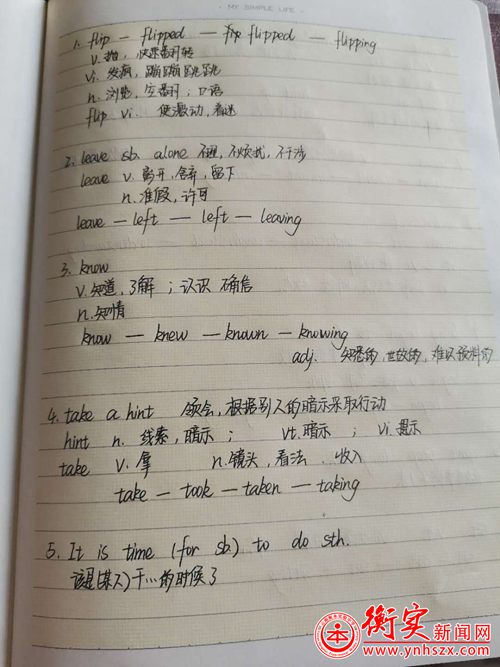 · MY SIMPLE LIFE ·
1. flip — flipped — flipped — flipping
v. 抛，快速翻转
vi. 发疯，蹦蹦跳跳
n. 浏览，空翻；口语
flip vi. 使激动，着迷
2. leave sb. alone 不理，不烦扰，不干涉
leave v. 离开，舍弃，留下
n. 准假，许可
leave — left — left — leaving
3. know
v. 知道，了解；认识 确信
n. 知情
know — knew — known — knowing
adj. 知悉的，世故的，难以预料的
4. take a hint 领会，根据别人的暗示采取行动
hint n. 线索，暗示； vt. 暗示； vi. 提示
take v. 拿 n. 镜头，看法 收入
take — took — taken — taking
5. It is time (for sb.) to do sth.
该是(某人)干…的时候了
衡实新闻网
www.ynhszx.com